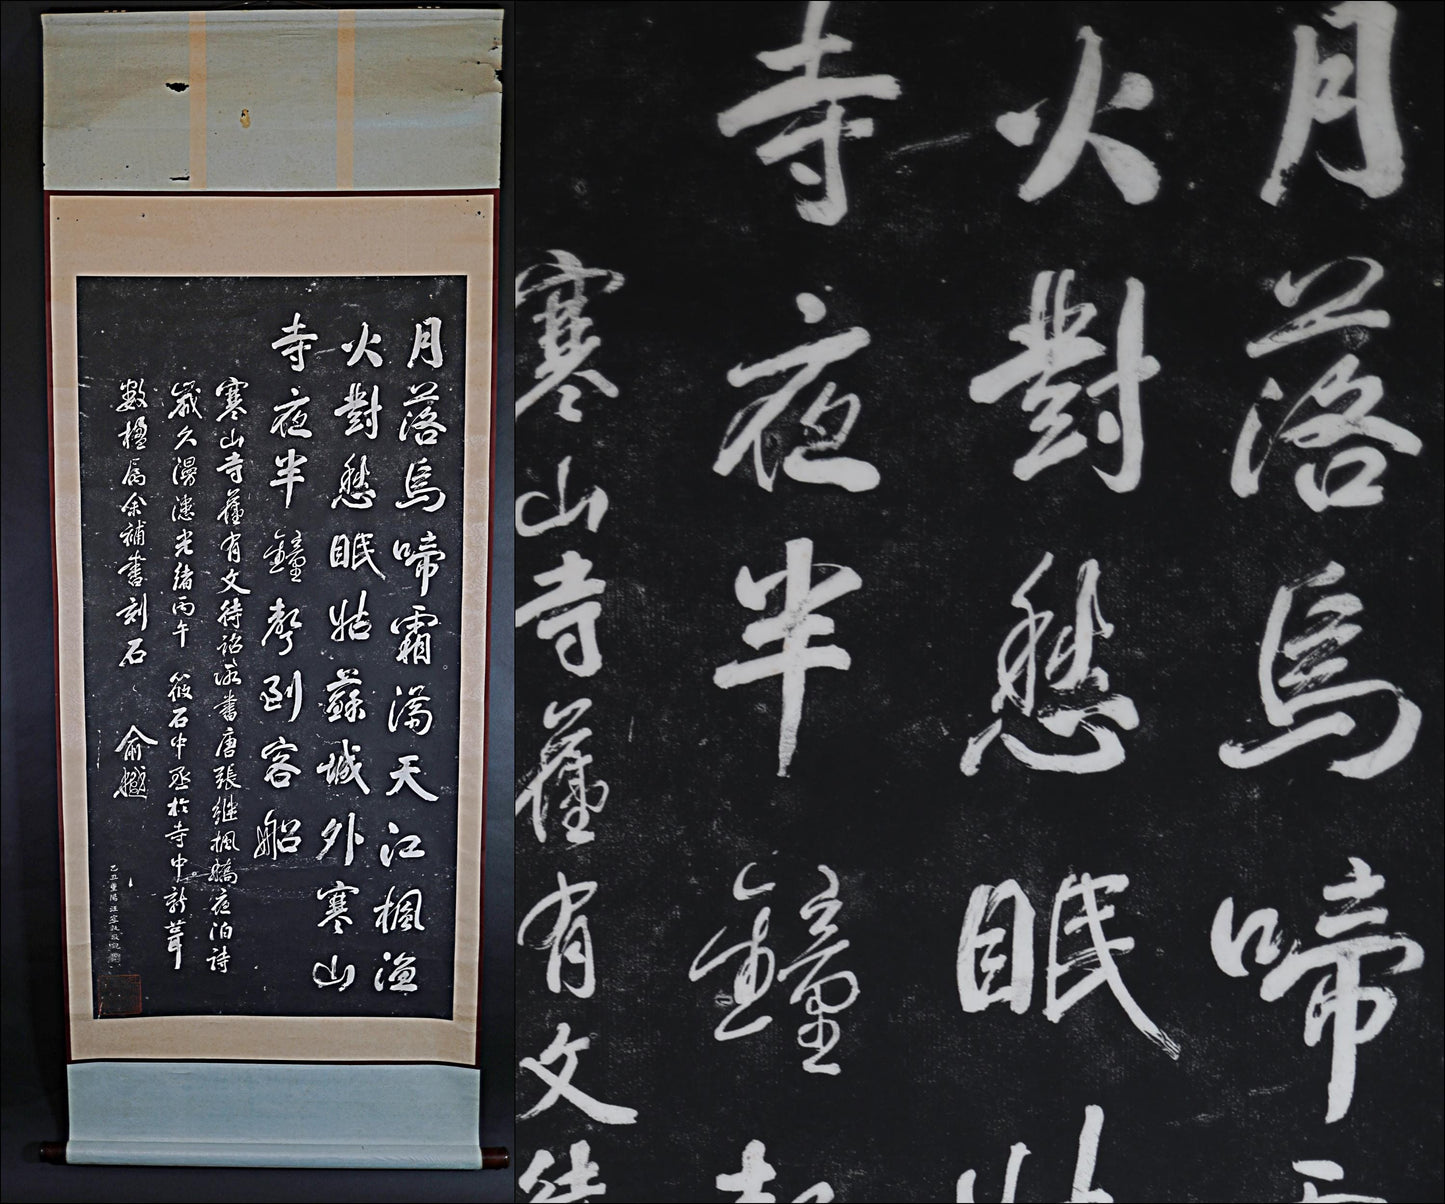 月落烏啼霜滿天江楓漁
火對愁眠姑蘇城外寒山
寺夜半鐘聲到客船
寒山寺舊有文待詔所書唐張繼楓橋夜泊詩
歲久漫漶光緒丙午筱石中丞於寺中新葺
數楹屬余補書刻石 俞樾
乙丑重陽
月落烏啼
火對愁眠
寺夜半鐘
寒山寺舊有文待